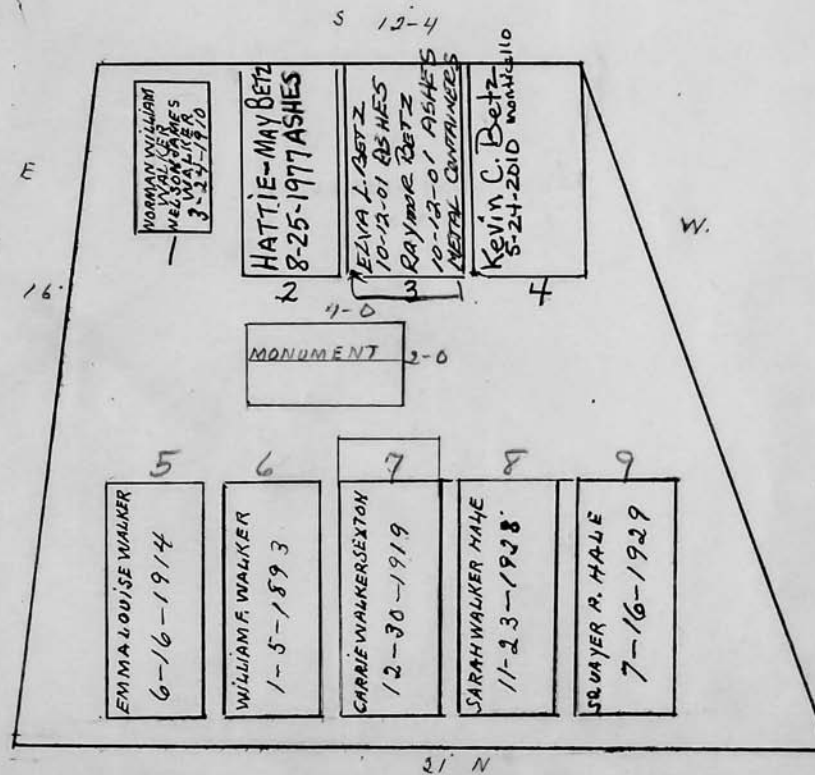 S 12-4
E
W.
16
NORMAN WILLIAM
WALKER
NELSON JAMES
WALKER
3-24-1910
1
HATTIE-MAY BETZ
8-25-1977 ASHES
2
ELVA L. BETZ
10-12-01 ASHES
RAYMOR BETZ
10-12-01 ASHES
METAL CONTAINERS
3
Kevin C. Betz
5-24-2010 monticello
4
4-0
MONUMENT 2-0
5
EMMA LOUISE WALKER
6-16-1914
6
WILLIAM F. WALKER
1-5-1893
7
CARRIE WALKER SEXTON
12-30-1919
8
SARAH WALKER HALE
11-23-1928
9
SQUAYER A. HALE
7-16-1929
21 N